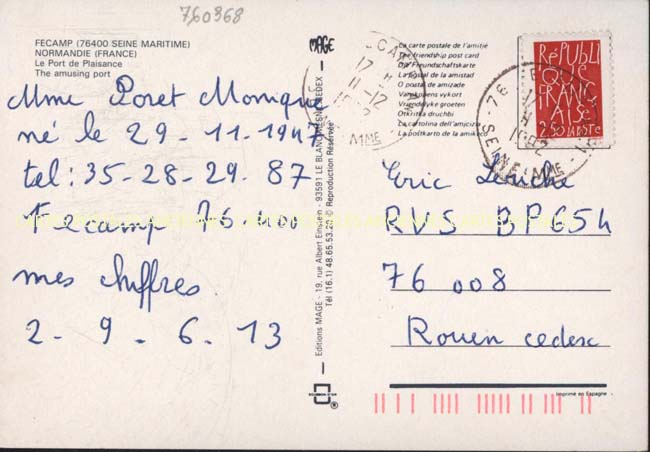 760368
FECAMP (76400 SEINE MARITIME)
NORMANDIE (FRANCE)
Le Port de Plaisance
The amusing port
Mme Poret Monique
né le 29-11-1947
tel: 35-28-29-87
Fecamp 76400
mes chiffres.
2-9-6-13
MAGE
Editions MAGE - 19, rue Albert Einstein - 93591 LE BLANC MESNIL CEDEX
Tél (16.1) 48.65.53.20 © Reproduction Réservée
La carte postale de l'amitié
The friendship post card
Die Freundschaftskarte
La postal de la amistad
O postal de amizade
Vänskapens vykort
Vriendelyke groeten
Otkritka druchbi
La cartolina dell'amicizia
La postkarto de la amikeco
17 H
11-12
RÉPUBLI
QUE
FRANÇ
AISE
2,50 LA POSTE
76
Eric
RVS BP654
76008
Rouen cedex
Imprimé en Espagne